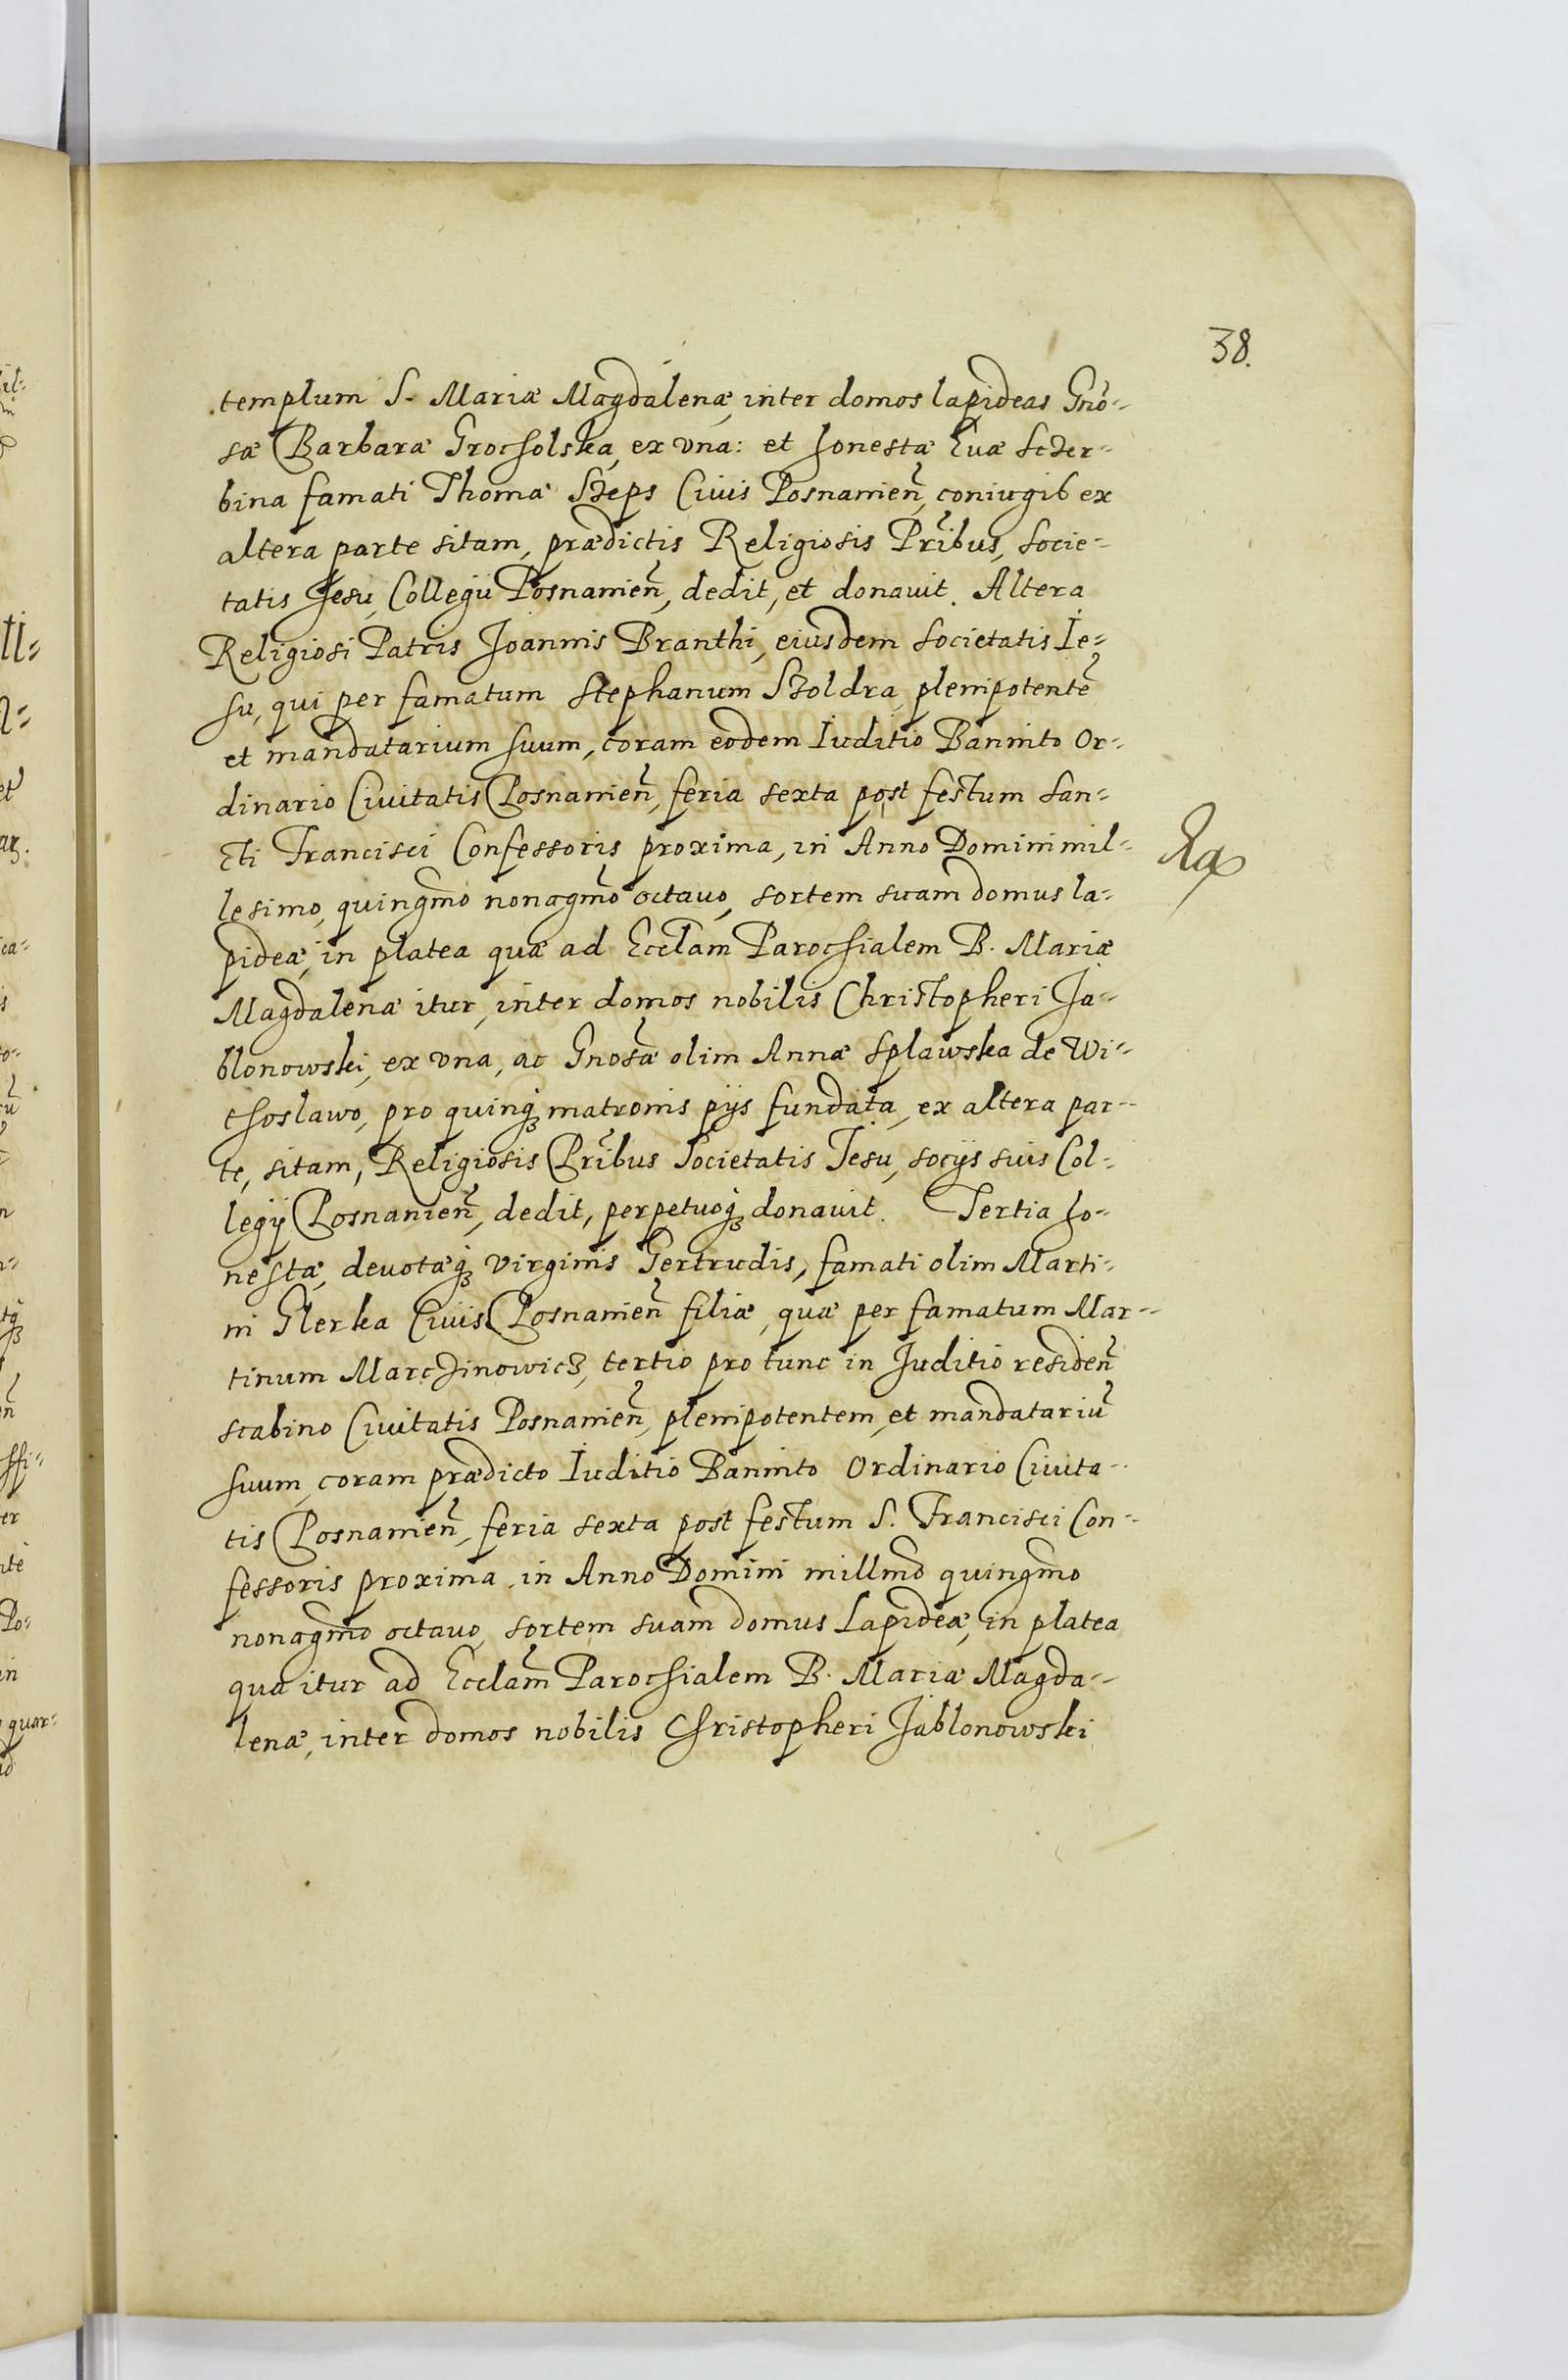 38.
templum S. Mariæ Magdalenæ, inter domos lapideas Gnõ-
sæ Barbaræ Grocholska, ex vna: et honestæ Euæ Sczer-
bina famati Thomæ Szeps Ciuis Posnanien̄, coniugib ex
altera parte sitam, prædictis Religiosis Pribus, Socie-
tatis Jesu, Collegii Posnanien̄, dedit, et donauit. Altera
Religiosi Patris Joannis Branthi, eiusdem Societatis Ie-
su, qui per famatum Stephanum Szoldra, plenipotentē
et mandatarium suum, coram eodem Iuditio Bannito Or-
dinario Ciuitatis Posnanien̄, feria sexta post festum San-
cti Francisci Confessoris proxima, in Anno Domini mil-
lesimo, quingmo nonagmo octauo, sortem suam domus la-
pideæ, in platea quæ ad Ecclam Parochialem B. Mariæ
Magdalenæ itur, inter domos nobilis Christopheri Ja-
blonowski, ex vna, ac Gnosæ olim Annæ Splawska de Wi-
choslawo, pro quinq; matronis pijs fundata, ex altera par-
te, sitam, Religiosis Pribus Societatis Jesu, socijs suis Col-
legij Posnanien̄, dedit, perpetuoq; donauit. Tertia ho-
nestæ, deuotæq; virginis Gertrudis, famati olim Marti-
ni Glerka Ciuis Posnanien̄ filiæ, quæ per famatum Mar-
tinum Marczinowicz, tertio pro tunc in Juditio residen̄
scabino Ciuitatis Posnanien̄, plenipotentem, et mandatariū
suum, coram prædicto Iuditio Bannito Ordinario Ciuita-
tis Posnanien̄, feria sexta post festum S. Francisci Con-
fessoris proxima, in Anno Domini millmo quingmo
nonagmo octauo, sortem suam domus Lapideæ, in platea
qua itur ad Ecclam Parochialem B. Mariæ Magda-
lenæ, inter domos nobilis Christopheri Jablonowski